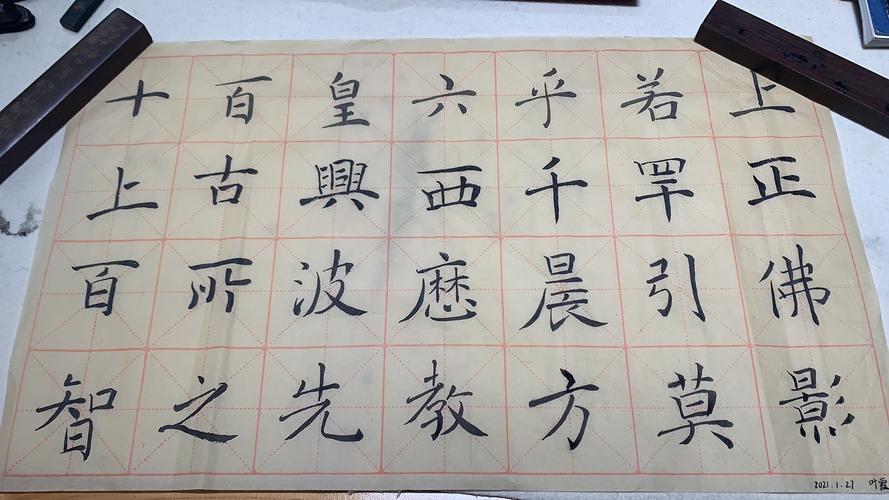 上正佛影
若罕引莫
乎千晨方
六西教
皇興波先
百古所之
十上百智
2021.1.27 叶